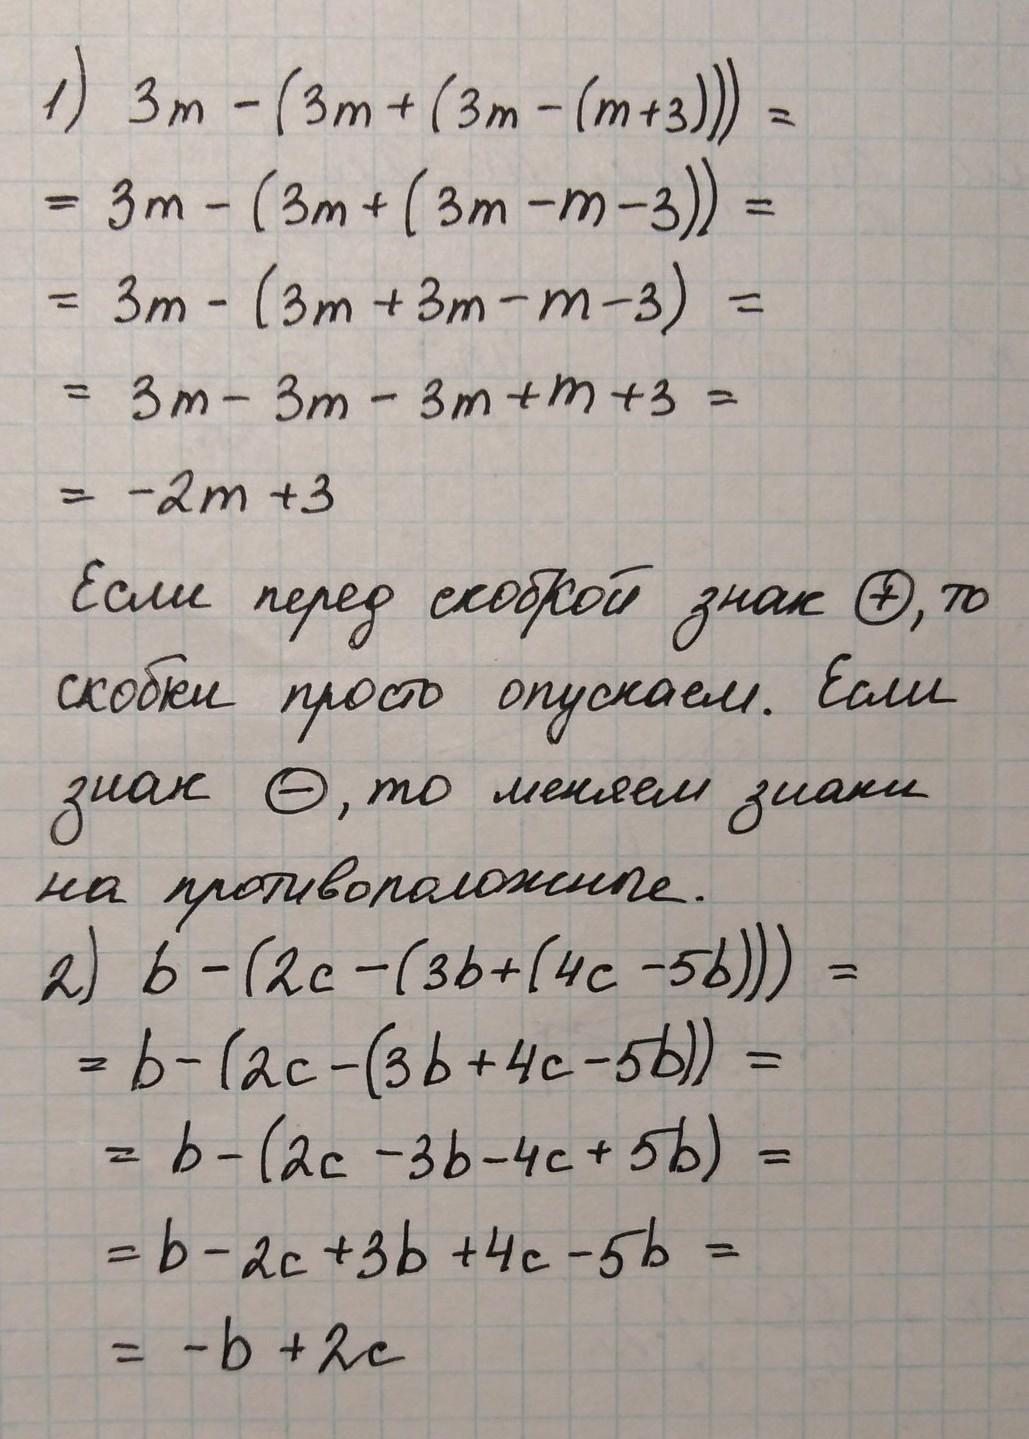 1) 3m - (3m + (3m - (m+3))) =
= 3m - (3m + (3m - m - 3)) =
= 3m - (3m + 3m - m - 3) =
= 3m - 3m - 3m + m + 3 =
= -2m + 3
Если перед скобкой знак ⊕, то
скобки просто опускаем. Если
знак ⊖, то меняем знаки
на противоположные.
2) b - (2c - (3b + (4c - 5b))) =
= b - (2c - (3b + 4c - 5b)) =
= b - (2c - 3b - 4c + 5b) =
= b - 2c + 3b + 4c - 5b =
= -b + 2c